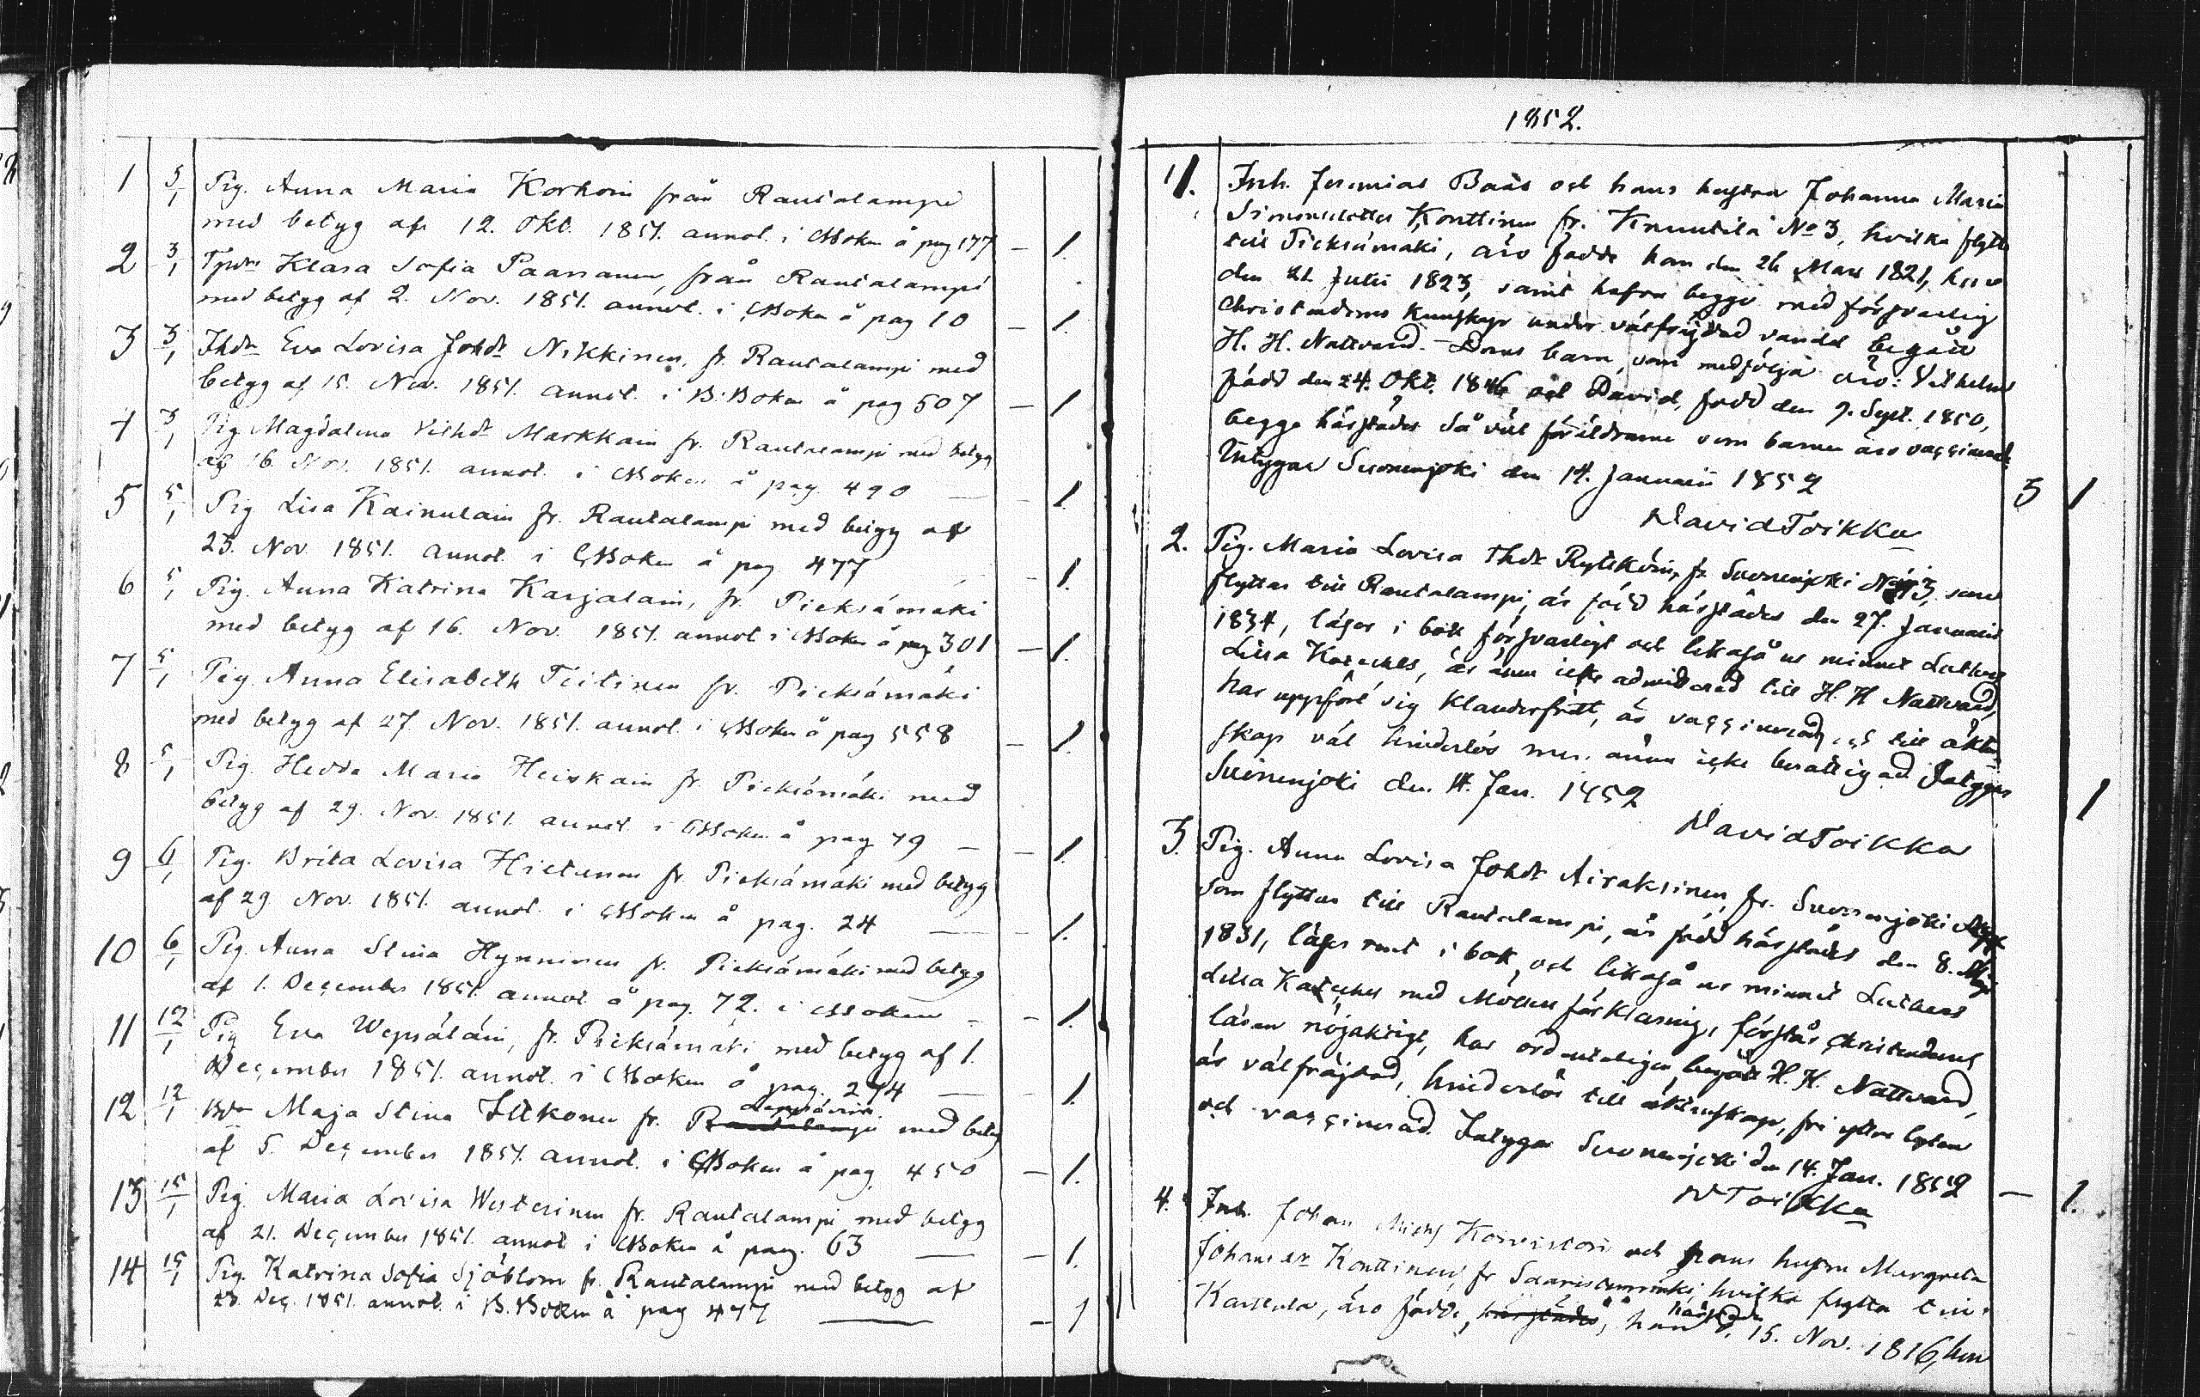 1 5/1 Pig. Anna Maria Korhoin från Rautalampi
med betyg af 12. Okt. 1851. annot. i CBoken å pag 177 — 1.
2 3/1 Klara Sofia Paananen, från Rautalampi
med betyg af 2. Nov. 1851. annot. i CBoken å pag 10 — 1.
3 3/1 Eva Lovisa Johdr Nikkinen, fr. Rautalampi med
betyg af 15. Nov. 1851. annot. i B.Boken å pag 507 — 1
4 3/1 Pig Magdalena Vilhdr Markkain fr. Rautalampi med betyg
af 16. Nov. 1851. annot. i CBoken å pag. 490 — 1
5 5/1 Pig Lisa Kainulain fr. Rautalampi med betyg af
23. Nov. 1851. annot. i CBoken å pag 477 — 1.
6 5/1 Pig. Anna Katrina Karjalain, fr. Pieksämäki
med betyg af 16. Nov. 1851. annot i CBoken å pag 301 — 1.
7 5/1 Pig. Anna Elisabeth Tiitinen fr. Pieksämäki
med betyg af 27. Nov. 1851. annot. i CBoken å pag 558 — 1.
8 5/1 Pig. Hedda Maria Heiskain fr. Pieksämäki med
betyg af 29. Nov. 1851. annot. i CBoken å pag 79 — 1.
9 6/1 Pig. Brita Lovisa Hietanen fr. Pieksämäki med betyg
af 29. Nov. 1851. annot. i CBoken å pag. 24 — 1.
10 6/1 Pig. Anna Stina Hynninen fr. Pieksämäki med betyg
af 1. December 1851. annot å pag. 72. i CBoken — 1.
11 12/1 Pig Eva Wepsäläin, fr. Pieksämäki med betyg af 1.
December 1851. annot. i CBoken å pag. 274 — 1.
Leppävirta
12 12/1 Maja Stina Itkonen fr. Rautalampi med betyg
af 5. December 1851. annot. i CBoken å pag. 450 — 1.
13 15/1 Pig. Maria Lovisa Westerinen fr. Rautalampi med betyg
af 21. December 1851. annot i CBoken å pag. 63 — 1.
14 15/1 Pig. Katrina Sofia Sjöblom fr. Rautalampi med betyg af
28. Dec. 1851. annot. i B.Boken å pag 477 — 1
1852.
1. Inh. Jeremias Baås och hans hustru Johanna Maria
Simonsdotter Konttinen fr. Knuutila No 3, hvilka flytta
till Pieksämäki, äro födde han den 26 Mars 1821, hon
den 21. Julii 1823, samt hafva begge med försvarlig
Christendoms kunskap under välfräjdad vandel begått
H. H. Nattvard. – Deras barn, som medfölja äro: Vilhelm
född den 24. Okt. 1846 och David, född den 9. Sept. 1850,
begge härstädes Så väl föräldrarne som barnen äro vaccinerade
Intygar Suonenjoki den 14. Januarii 1852 3 1
David Toikka
2. Pig. Maria Lovisa Thdr Rytkköin, fr Suonenjoki No 3, som
flyttar till Rautalampi, är född härstädes den 27. Januarii
1834, läser i bok försvarligt och likaså ur minnet Luthers
Lilla Kateches, är ännu icke admitterad till H. H Nattvard,
har uppfört sig klanderfritt, är vaccinerad, och till äkten-
skap väl hinderlös men ännu icke berättigad. Intygar
Suonenjoki den 14. Jan. 1852 1
David Toikka
3. Pig. Anna Lovisa Johdr Airaksinen, fr. Suonenjoki
som flyttar till Rautalampi, är född härstädes den 8.
1831, läser rent i bok, och likaså ur minnet Luthers
Lilla Kateches med Möllers förklaring, förstår christendoms
läran nöjaktigt, har ordenteligen begått H. H. Nattvard,
är välfräjdad, hinderlös till äktenskap, fri yttre lyten
och vaccinerad. Intygar Suonenjoki den 14. Jan. 1852 — 1.
D Toikka
4. Inh. Johan Koivistoin och hans hustru Margreta
Johansdr Konttinen, fr Saaristenmäki, hvilka flytta till
härstädes
Karttula, äro födde, härstädes, han d. 15. Nov. 1816, hon